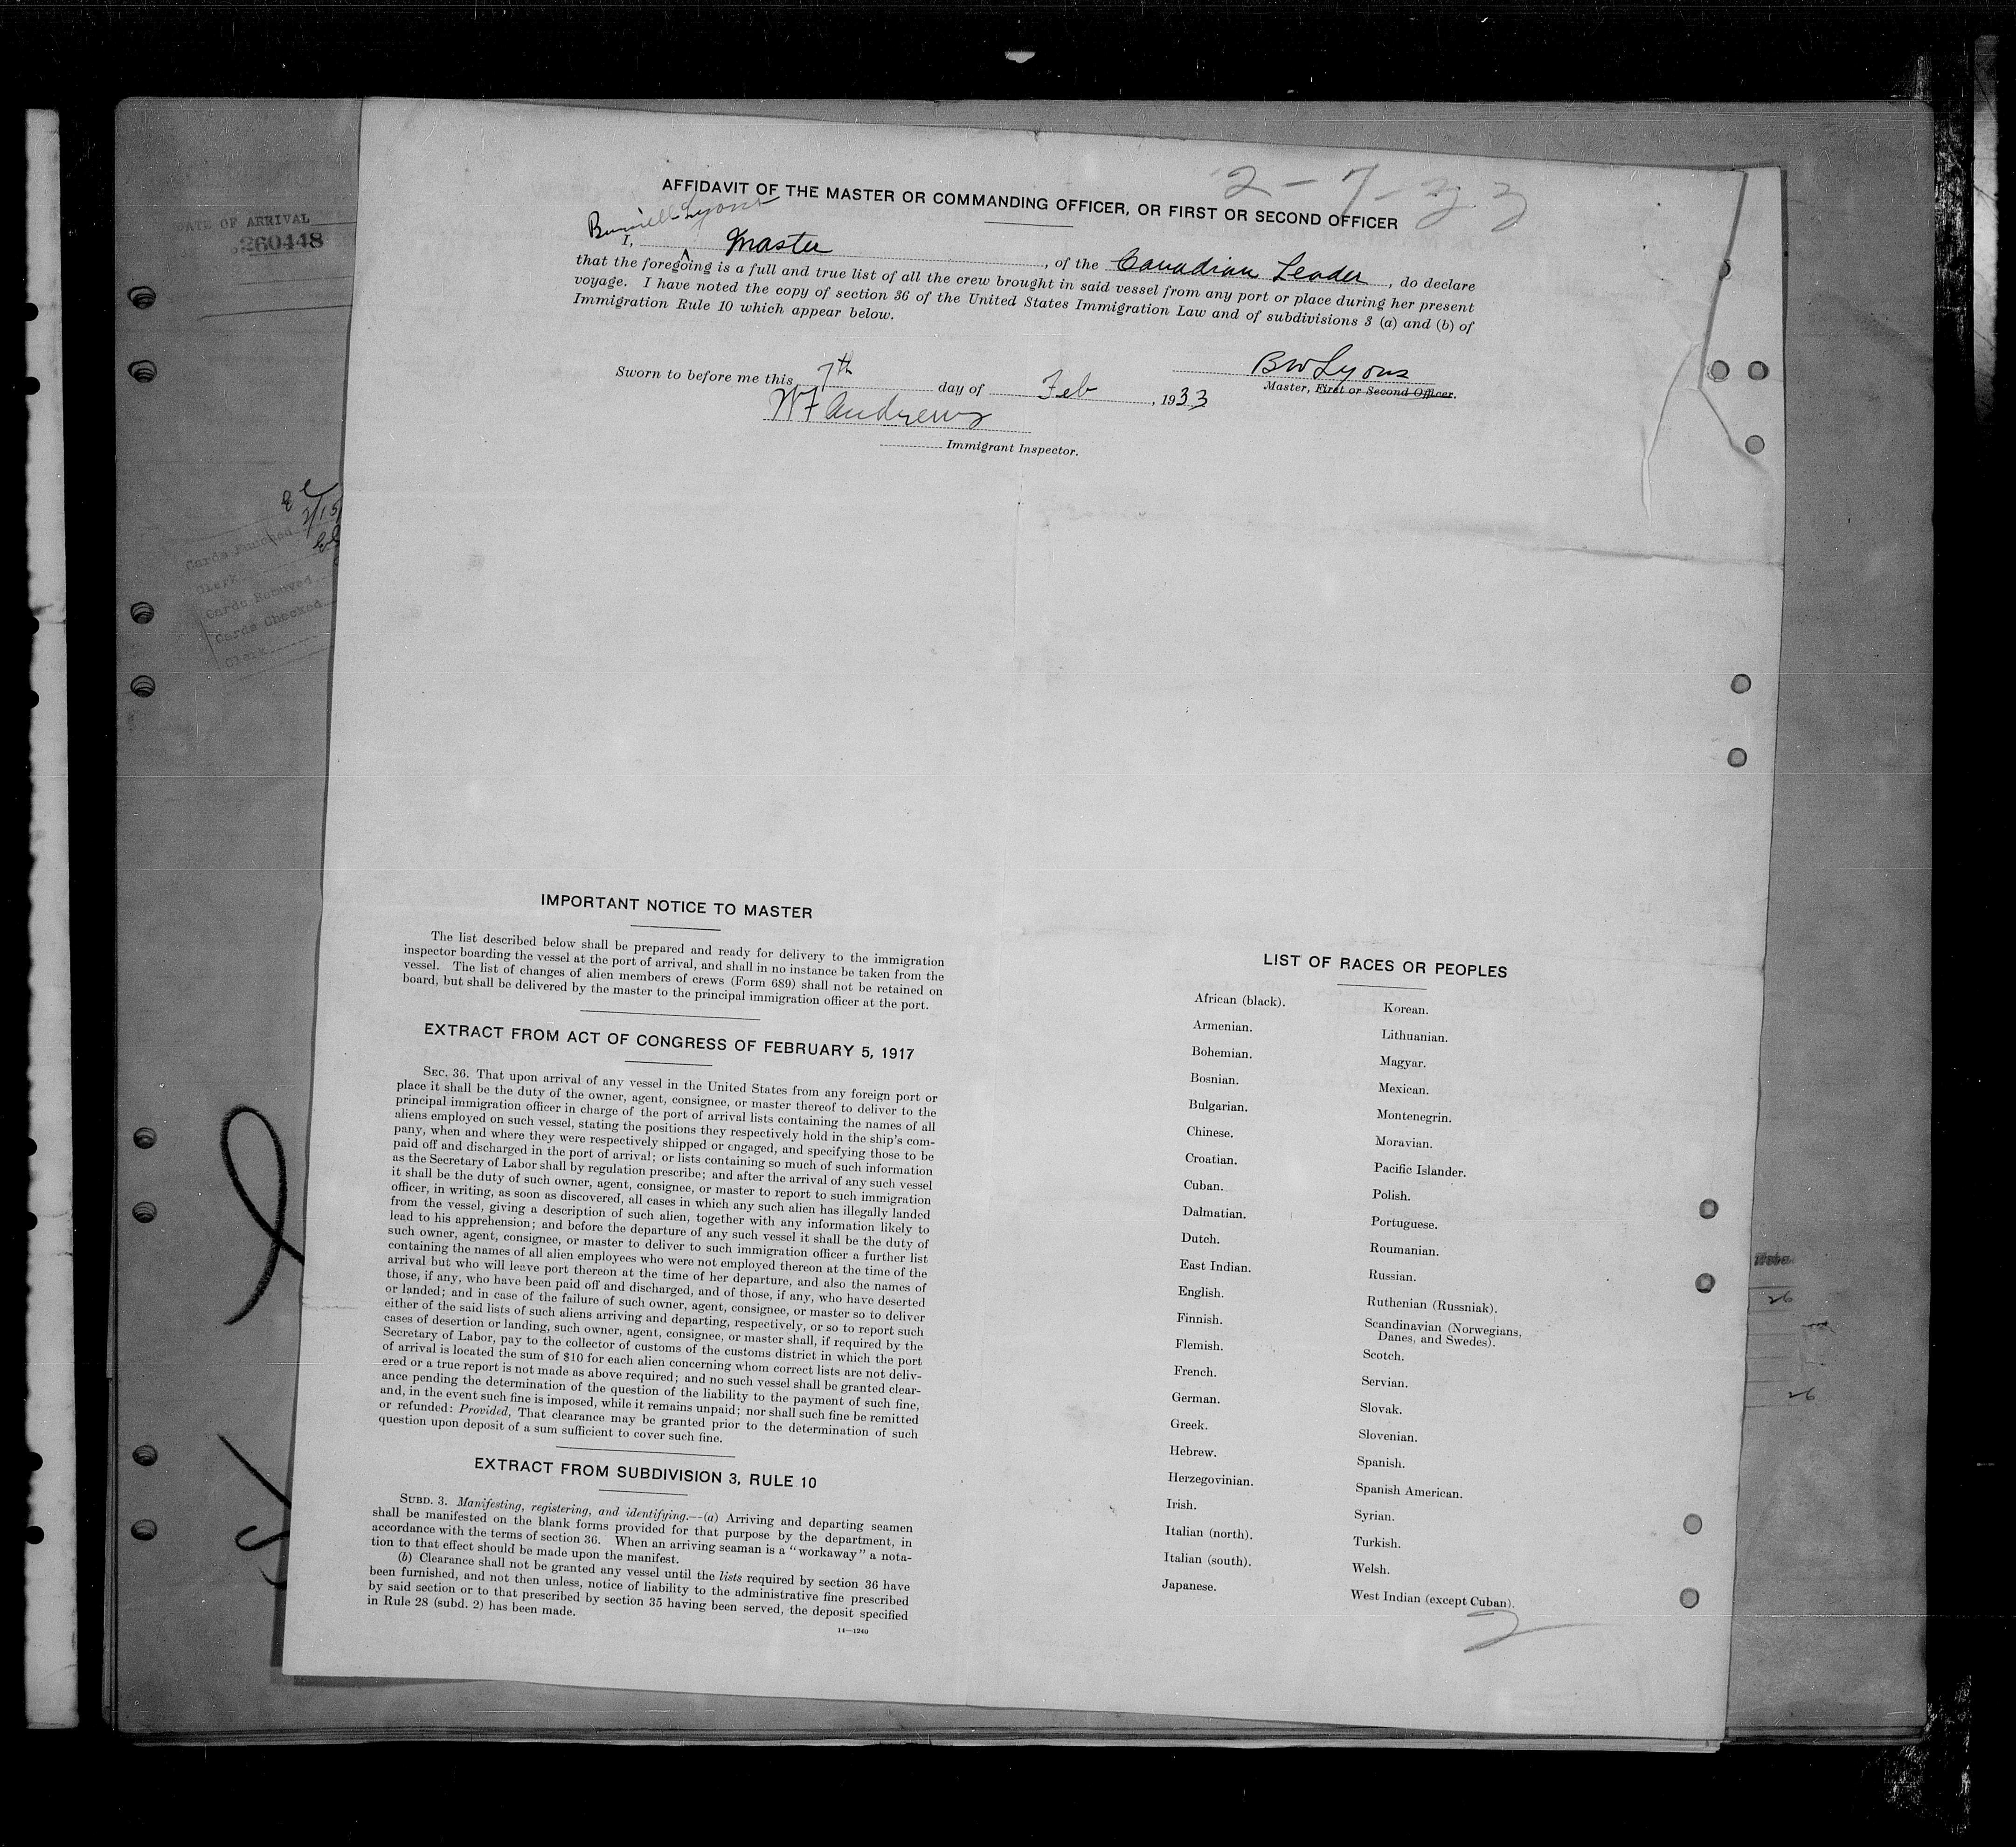 2-7-33
AFFIDAVIT OF THE MASTER OR COMMANDING OFFICER, OR FIRST OR SECOND OFFICER
Lyons
I, Master, of the Canadian Leader, do declare
that the foregoing is a full and true list of all the crew brought in said vessel from any port or place during her present
voyage. I have noted the copy of section 36 of the United States Immigration Law and of subdivisions 3 (a) and (b) of
Immigration Rule 10 which appear below.
BW Lyons
Master, First or Second Officer.
Sworn to before me this 7th day of Feb, 1933
W F Andrews
Immigrant Inspector.
DATE OF ARRIVAL
260448
Cards Punched
Clerk
Cards Removed
Cards Checked
Clerk
IMPORTANT NOTICE TO MASTER
The list described below shall be prepared and ready for delivery to the immigration
inspector boarding the vessel at the port of arrival, and shall in no instance be taken from the
vessel. The list of changes of alien members of crews (Form 689) shall not be retained on
board, but shall be delivered by the master to the principal immigration officer at the port.
EXTRACT FROM ACT OF CONGRESS OF FEBRUARY 5, 1917
SEC. 36. That upon arrival of any vessel in the United States from any foreign port or
place it shall be the duty of the owner, agent, consignee, or master thereof to deliver to the
principal immigration officer in charge of the port of arrival lists containing the names of all
aliens employed on such vessel, stating the positions they respectively hold in the ship's com-
pany, when and where they were respectively shipped or engaged, and specifying those to be
paid off and discharged in the port of arrival; or lists containing so much of such information
as the Secretary of Labor shall by regulation prescribe; and after the arrival of any such vessel
it shall be the duty of such owner, agent, consignee, or master to report to such immigration
officer, in writing, as soon as discovered, all cases in which any such alien has illegally landed
from the vessel, giving a description of such alien, together with any information likely to
lead to his apprehension; and before the departure of any such vessel it shall be the duty of
such owner, agent, consignee, or master to deliver to such immigration officer a further list
containing the names of all alien employees who were not employed thereon at the time of the
arrival but who will leave port thereon at the time of her departure, and also the names of
those, if any, who have been paid off and discharged, and of those, if any, who have deserted
or landed; and in case of the failure of such owner, agent, consignee, or master so to deliver
either of the said lists of such aliens arriving and departing, respectively, or so to report such
cases of desertion or landing, such owner, agent, consignee, or master shall, if required by the
Secretary of Labor, pay to the collector of customs of the customs district in which the port
of arrival is located the sum of $10 for each alien concerning whom correct lists are not deliv-
ered or a true report is not made as above required; and no such vessel shall be granted clear-
ance pending the determination of the question of the liability to the payment of such fine,
and, in the event such fine is imposed, while it remains unpaid; nor shall such fine be remitted
or refunded: Provided, That clearance may be granted prior to the determination of such
question upon deposit of a sum sufficient to cover such fine.
EXTRACT FROM SUBDIVISION 3, RULE 10
SUBD. 3. Manifesting, registering, and identifying.—(a) Arriving and departing seamen
shall be manifested on the blank forms provided for that purpose by the department, in
accordance with the terms of section 36. When an arriving seaman is a "workaway" a nota-
tion to that effect should be made upon the manifest.
(b) Clearance shall not be granted any vessel until the lists required by section 36 have
been furnished, and not then unless, notice of liability to the administrative fine prescribed
by said section or to that prescribed by section 35 having been served, the deposit specified
in Rule 28 (subd. 2) has been made.
14—1240
LIST OF RACES OR PEOPLES
African (black).
Armenian.
Bohemian.
Bosnian.
Bulgarian.
Chinese.
Croatian.
Cuban.
Dalmatian.
Dutch.
East Indian.
English.
Finnish.
Flemish.
French.
German.
Greek.
Hebrew.
Herzegovinian.
Irish.
Italian (north).
Italian (south).
Japanese.
Korean.
Lithuanian.
Magyar.
Mexican.
Montenegrin.
Moravian.
Pacific Islander.
Polish.
Portuguese.
Roumanian.
Russian.
Ruthenian (Russniak).
Scandinavian (Norwegians,
Danes, and Swedes).
Scotch.
Servian.
Slovak.
Slovenian.
Spanish.
Spanish American.
Syrian.
Turkish.
Welsh.
West Indian (except Cuban).
2
26
26